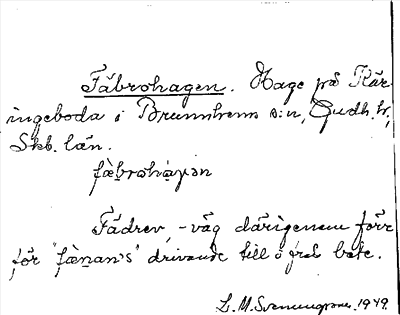 Fäbrohagen. Hage på Kär-
ingeboda i Brunnhems s:n, Gudh. hd,
Skb. län.
fæ̀broha̠gən
Fädrev, -väg därigenom förr
för "fæ̀nan's" drivande till o från bete.
L. M. Svenungsson. 1949.